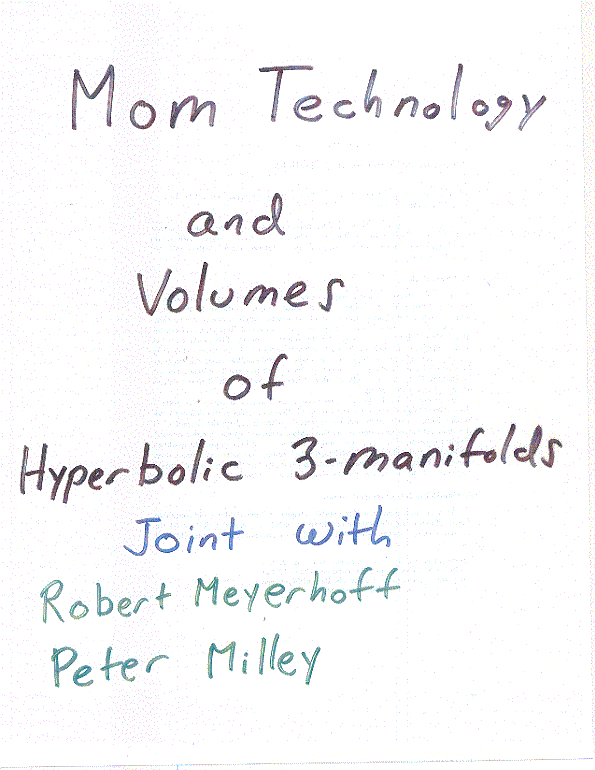 Mom Technology
and
Volumes
of
Hyperbolic 3-manifolds
Joint with
Robert Meyerhoff
Peter Milley